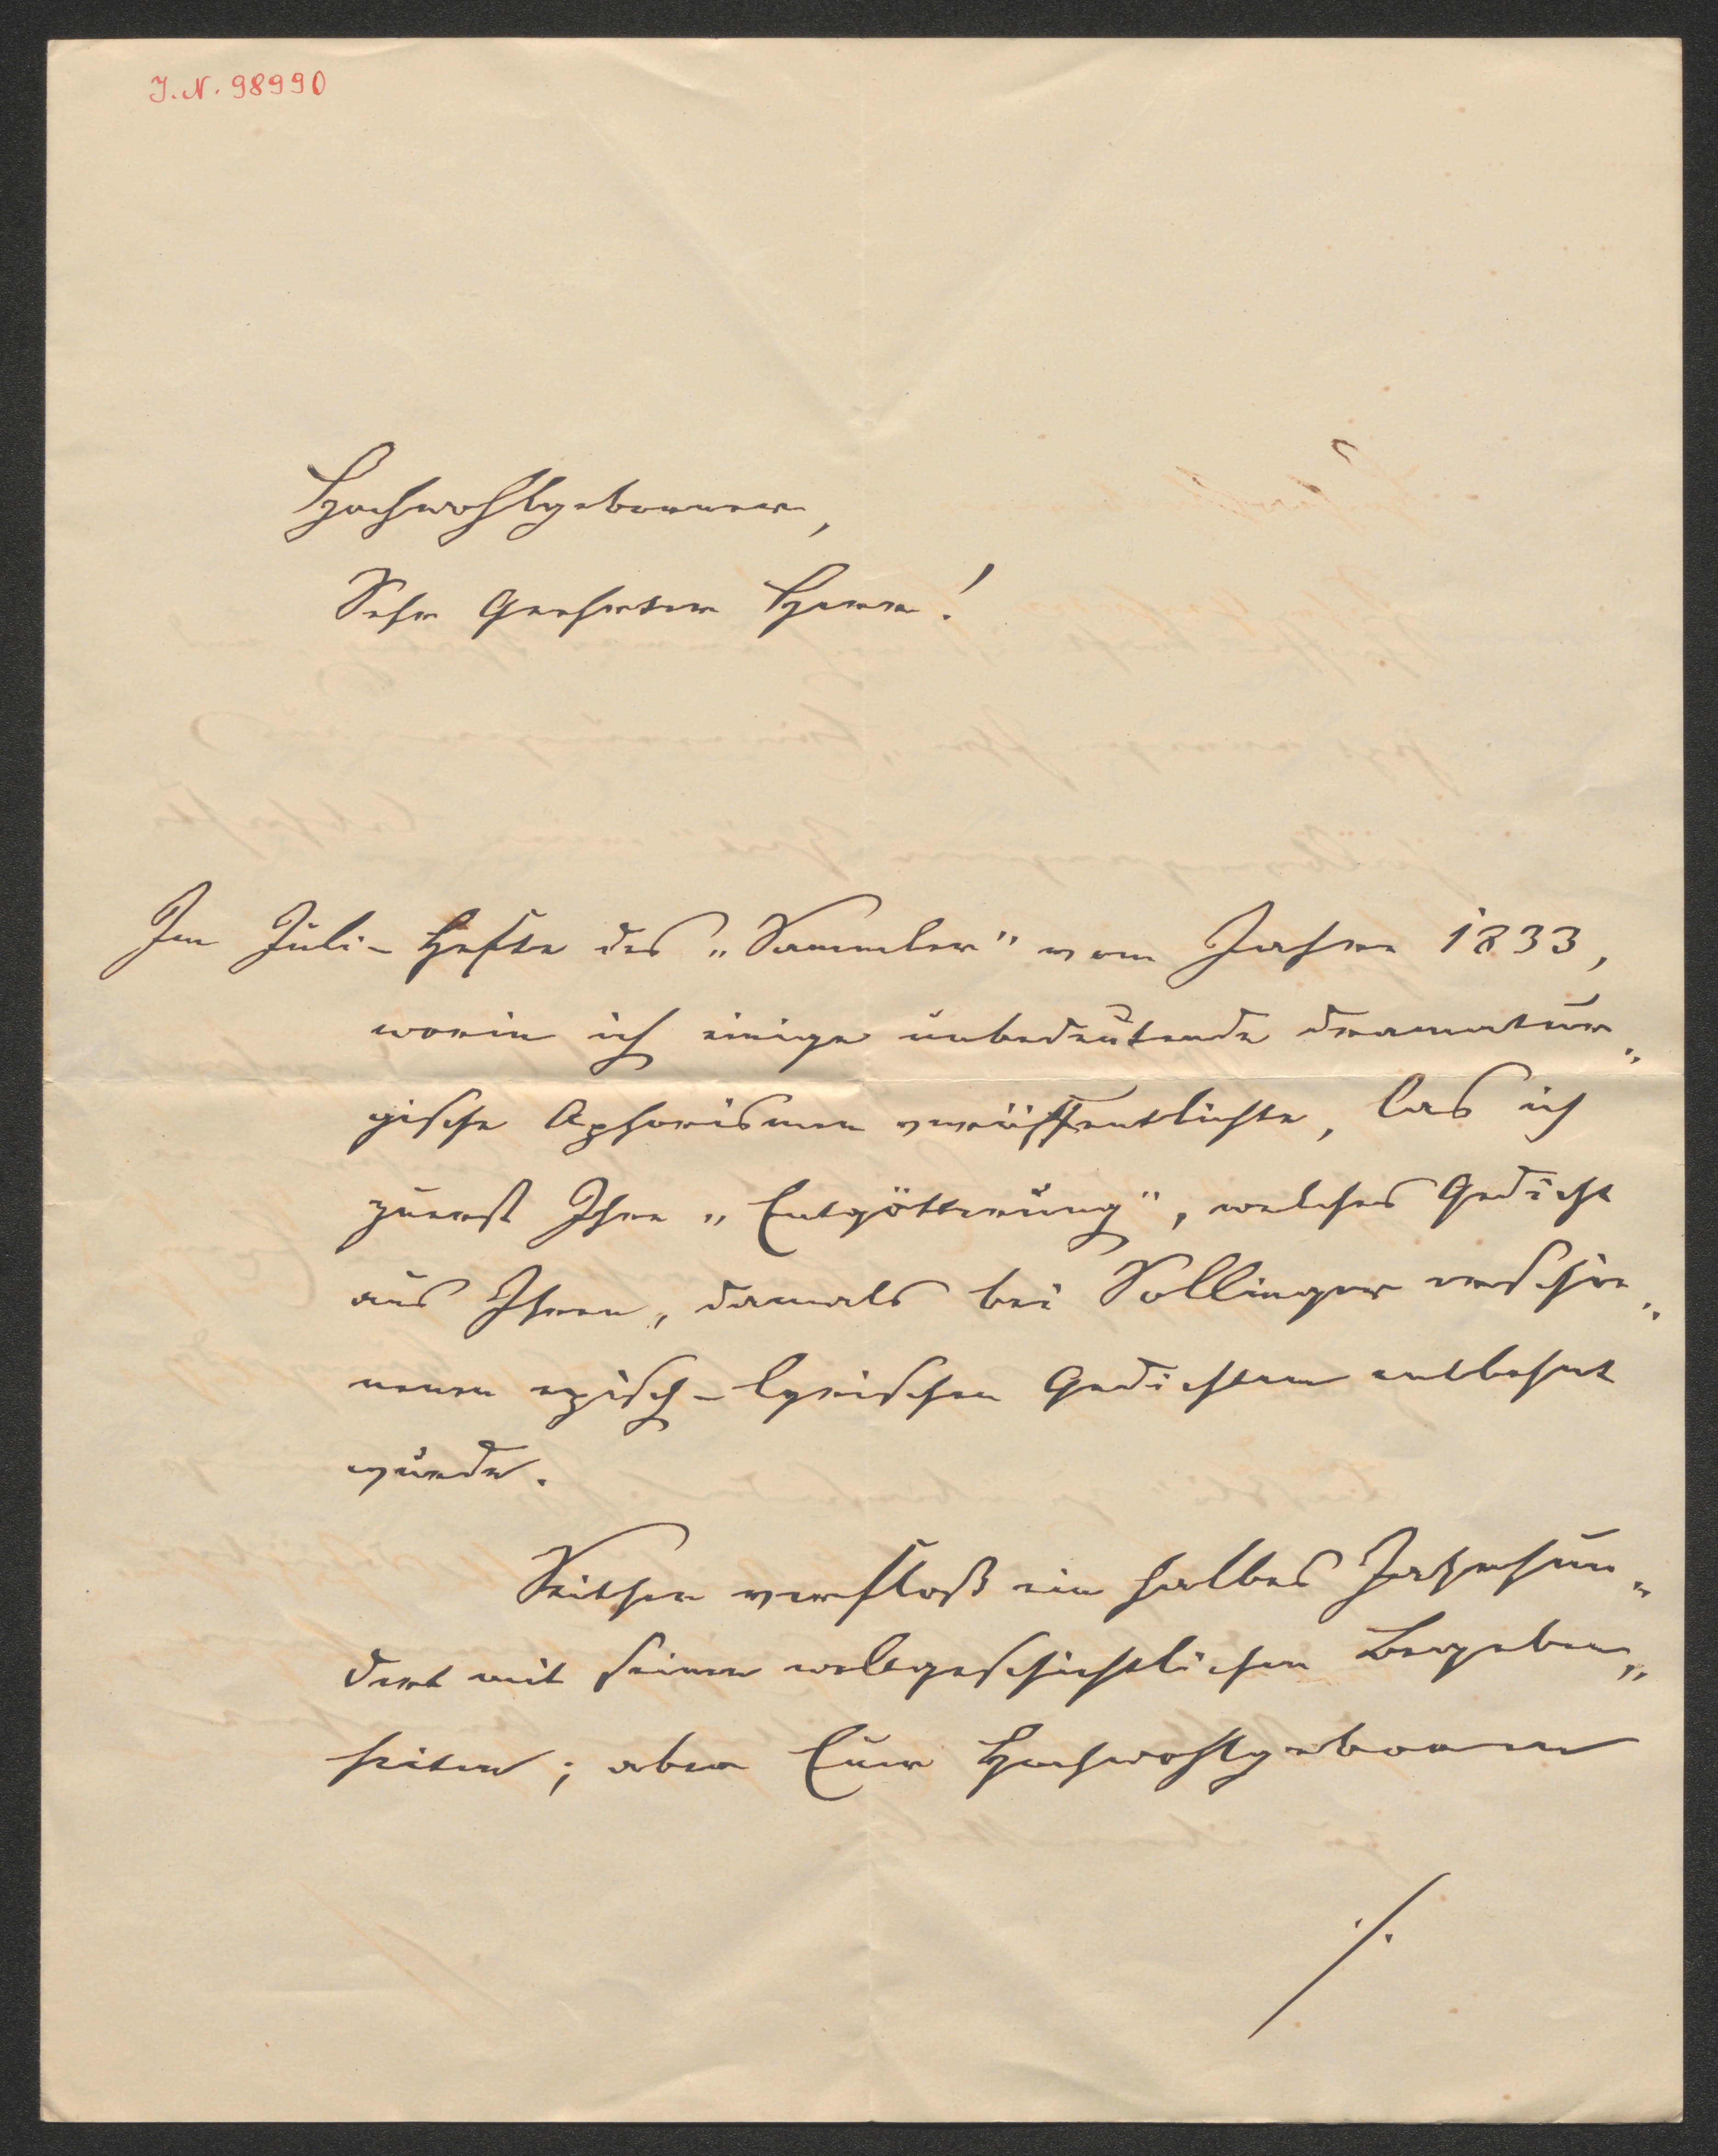 J. N. 98990
Hochwohlgeborener,
Sehr Geehrter Herr!
Im Juli-Hefte des „Sammler" vom Jahre 1833,
worin ich einige unbedeutende dramatur„
gische Aphorismen veröffentlichte, las ich
zuerst Ihre „Entgötterung", welches Gedicht
aus Ihren, damals bei Sollinger erschie„
nenen episch-lyrischen Gedichten entlehnt
wurde.
Seither verfloß ein halbes Jahrhun„
dert mit seinen weltgeschichtlichen Begeben„
heiten; aber Euer Hochwohlgeboren
./.